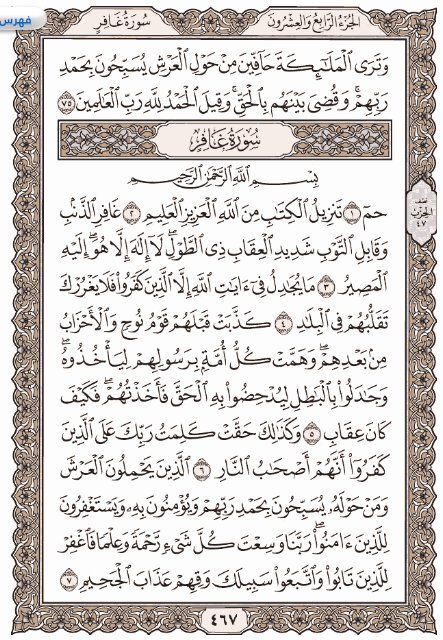 فهرس
سُورَةُ غَافِرٍ
الجُزْءُ الرَّابِعُ وَالعِشْرُونَ
وَتَرَى ٱلْمَلَٰٓئِكَةَ حَآفِّينَ مِنْ حَوْلِ ٱلْعَرْشِ يُسَبِّحُونَ بِحَمْدِ
رَبِّهِمْ ۖ وَقُضِىَ بَيْنَهُم بِٱلْحَقِّ ۚ وَقِيلَ ٱلْحَمْدُ لِلَّهِ رَبِّ ٱلْعَٰلَمِينَ ٧٥
سُورَةُ غَافِرٍ
بِسْمِ ٱللَّهِ ٱلرَّحْمَٰنِ ٱلرَّحِيمِ
حمٓ ١ تَنزِيلُ ٱلْكِتَٰبِ مِنَ ٱللَّهِ ٱلْعَزِيزِ ٱلْعَلِيمِ ٢ غَافِرِ ٱلذَّنۢبِ
وَقَابِلِ ٱلتَّوْبِ شَدِيدِ ٱلْعِقَابِ ذِى ٱلطَّوْلِ ۖ لَآ إِلَٰهَ إِلَّا هُوَ ۖ إِلَيْهِ
ٱلْمَصِيرُ ٣ مَا يُجَٰدِلُ فِىٓ ءَايَٰتِ ٱللَّهِ إِلَّا ٱلَّذِينَ كَفَرُوا۟ فَلَا يَغْرُرْكَ
تَقَلُّبُهُمْ فِى ٱلْبِلَٰدِ ٤ كَذَّبَتْ قَبْلَهُمْ قَوْمُ نُوحٍ وَٱلْأَحْزَابُ
مِنۢ بَعْدِهِمْ ۖ وَهَمَّتْ كُلُّ أُمَّةٍۭ بِرَسُولِهِمْ لِيَأْخُذُوهُ ۖ
وَجَٰدَلُوا۟ بِٱلْبَٰطِلِ لِيُدْحِضُوا۟ بِهِ ٱلْحَقَّ فَأَخَذْتُهُمْ ۖ فَكَيْفَ
كَانَ عِقَابِ ٥ وَكَذَٰلِكَ حَقَّتْ كَلِمَتُ رَبِّكَ عَلَى ٱلَّذِينَ
كَفَرُوٓا۟ أَنَّهُمْ أَصْحَٰبُ ٱلنَّارِ ٦ ٱلَّذِينَ يَحْمِلُونَ ٱلْعَرْشَ
وَمَنْ حَوْلَهُۥ يُسَبِّحُونَ بِحَمْدِ رَبِّهِمْ وَيُؤْمِنُونَ بِهِۦ وَيَسْتَغْفِرُونَ
لِلَّذِينَ ءَامَنُوا۟ رَبَّنَا وَسِعْتَ كُلَّ شَىْءٍ رَّحْمَةً وَعِلْمًا فَٱغْفِرْ
لِلَّذِينَ تَابُوا۟ وَٱتَّبَعُوا۟ سَبِيلَكَ وَقِهِمْ عَذَابَ ٱلْجَحِيمِ ٧
نصف
الحزب
٤٧
٤٦٧